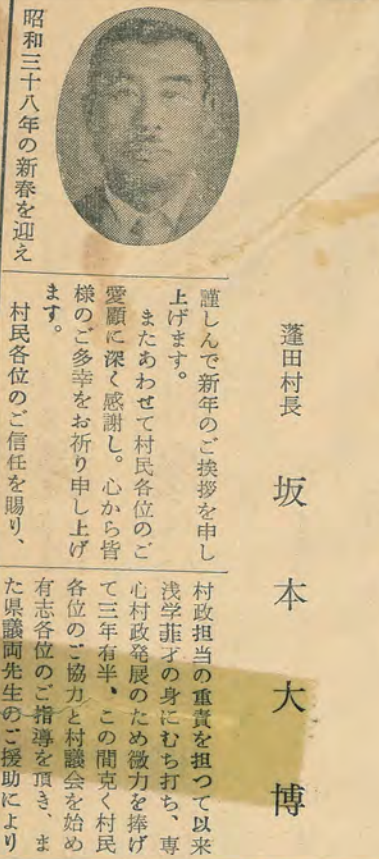 蓬田村長 坂本大博
昭和三十八年の新春を迎え
謹しんで新年のご挨拶を申し
上げます。
またあわせて村民各位のご
愛顧に深く感謝し。心から皆
様のご多幸をお祈り申し上げ
ます。
村民各位のご信任を賜り、
村政担当の重責を担つて以来
浅学菲才の身にむち打ち、専
心村政発展のため微力を捧げ
て三年有半、この間克く村民
各位のご協力と村議会を始め
有志各位のご指導を頂き、ま
た県議両先生のご援助により